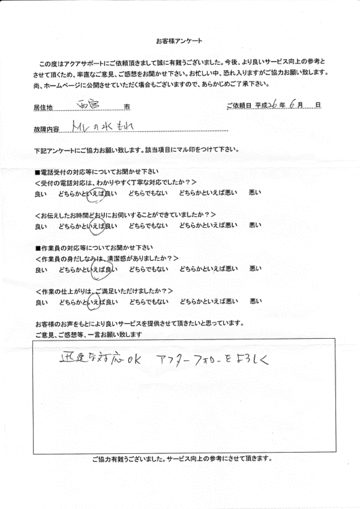 お客様アンケート
この度はアクアサポートにご依頼頂きまして誠に有難うございました。今後、より良いサービス向上の参考と
させて頂くため、率直なご意見、ご感想をお聞かせ下さい。お忙しい中、恐れ入りますがご協力お願い致します。
尚、ホームページに公開させていただく場合もございますので、あらかじめご了承下さい。
居住地 西宮 市 ご依頼日 平成26年 6月 日
故障内容 トイレの水もれ
下記アンケートにご協力お願い致します。該当項目にマル印をつけて下さい。
■電話受付の対応等についてお聞かせ下さい
<受付の電話対応は、わかりやすく丁寧な対応でしたか?>
良い どちらかといえば良い どちらでもない どちらかといえば悪い 悪い
<お伝えしたお時間どおりにお伺いすることができていましたか?>
良い どちらかといえば良い どちらでもない どちらかといえば悪い 悪い
■作業員の対応等についてお聞かせ下さい
<作業員の身だしなみは、清潔感がありましたか?>
良い どちらかといえば良い どちらでもない どちらかといえば悪い 悪い
<作業の仕上がりは、ご満足いただけましたか?>
良い どちらかといえば良い どちらでもない どちらかといえば悪い 悪い
お客様のお声をもとにより良いサービスを提供させて頂きたいと思っています。
ご意見、ご感想等、一言お願い致します
迅速な対応OK アフターフォローをよろしく
ご協力有難うございました。サービス向上の参考にさせて頂きます。